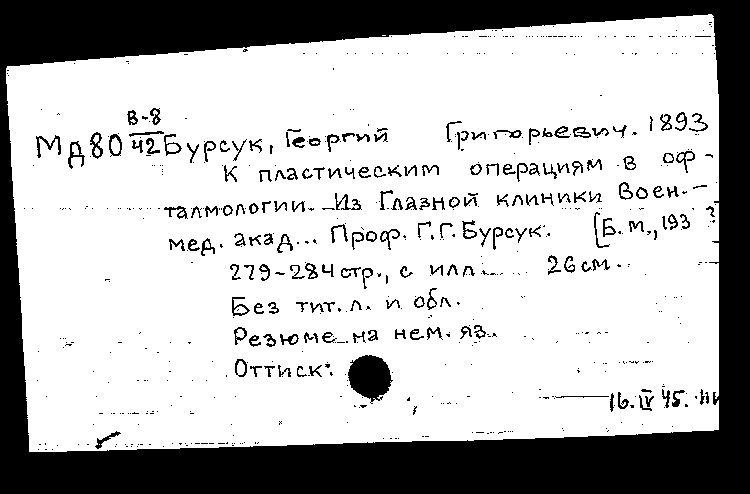 В-8
Мд80 42 Бурсук, Георгий Григорьевич. 1893
К пластическим операциям в оф-
талмологии. Из Глазной клиники Воен.-
мед. акад... Проф. Г.Г. Бурсук. [Б. м., 193 ?
279-284 стр., с илл. 26 см.
Без тит. л. и обл.
Резюме на нем. яз.
Оттиск.
16. IV 45.